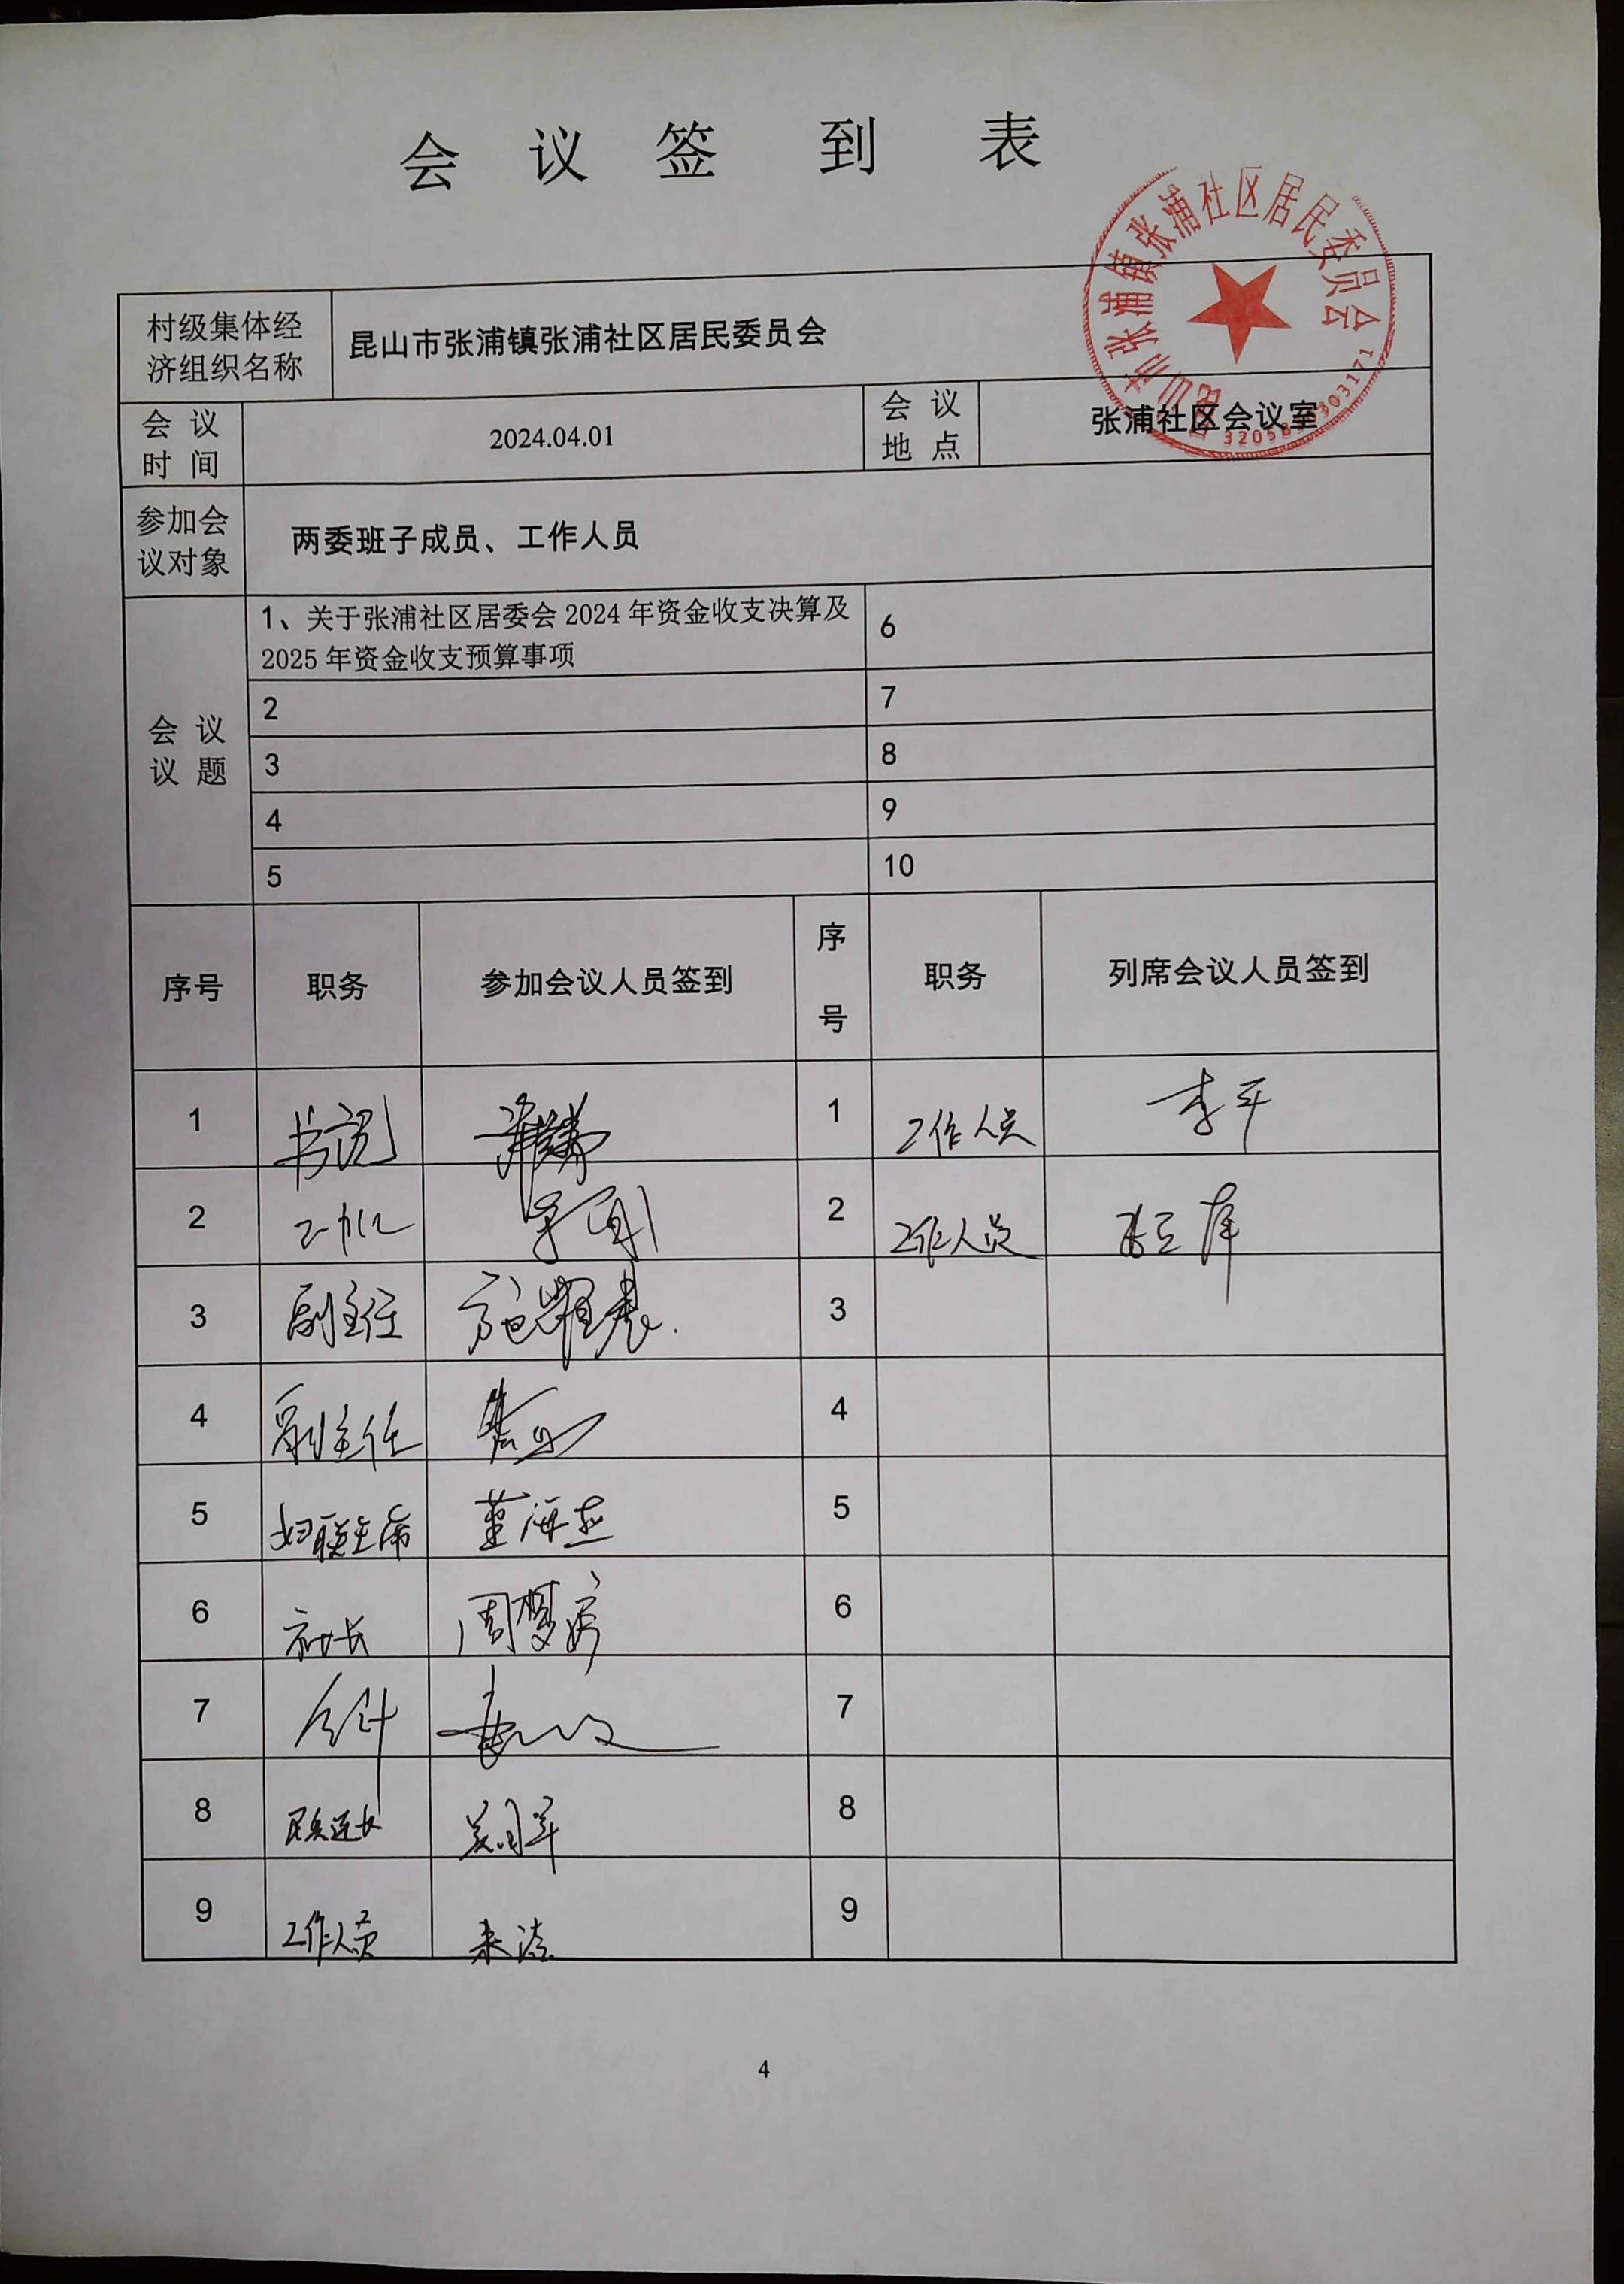 会议签到表
昆山市张浦镇张浦社区居民委员会
村级集体经
济组织名称
昆山市张浦镇张浦社区居民委员会
会议
时间
2024.04.01
会议
地点
张浦社区会议室
参加会
议对象
两委班子成员、工作人员
会议
议题
1、关于张浦社区居委会 2024 年资金收支决算及
2025 年资金收支预算事项
6
2
7
3
8
4
9
5
10
序号
职务
参加会议人员签到
序
号
职务
列席会议人员签到
1
书记
1
工作人员
李平
2
2
工作人员
3
副主任
3
4
副主任
4
5
妇联主席
董海燕
5
6
社长
6
7
会计
7
8
民兵连长
8
9
工作人员
9
4